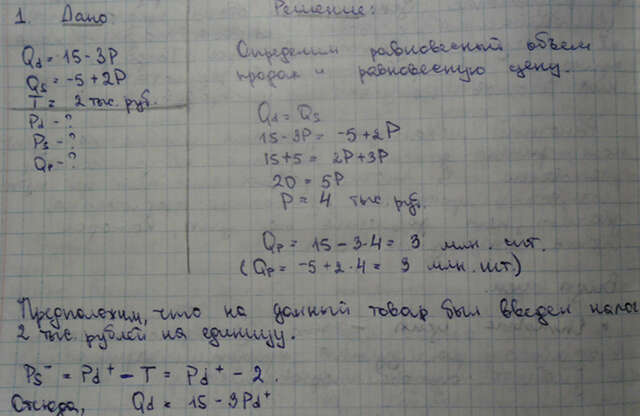 1. Дано:
Qd = 15 - 3P
Qs = -5 + 2P
T = 2 тыс. руб.
Pd - ?
Ps - ?
Qp - ?
Решение:
Определим равновесный объем
продаж и равновесную цену.
Qd = Qs
15 - 3P = -5 + 2P
15 + 5 = 2P + 3P
20 = 5P
P = 4 тыс. руб.
Qp = 15 - 3·4 = 3 млн. шт.
(Qp = -5 + 2·4 = 3 млн. шт.)
Предположим, что на данный товар был введен нало
2 тыс рублей на единицу.
Ps⁻ = Pd⁺ - T = Pd⁺ - 2.
Отсюда, Qd = 15 - 3Pd⁺